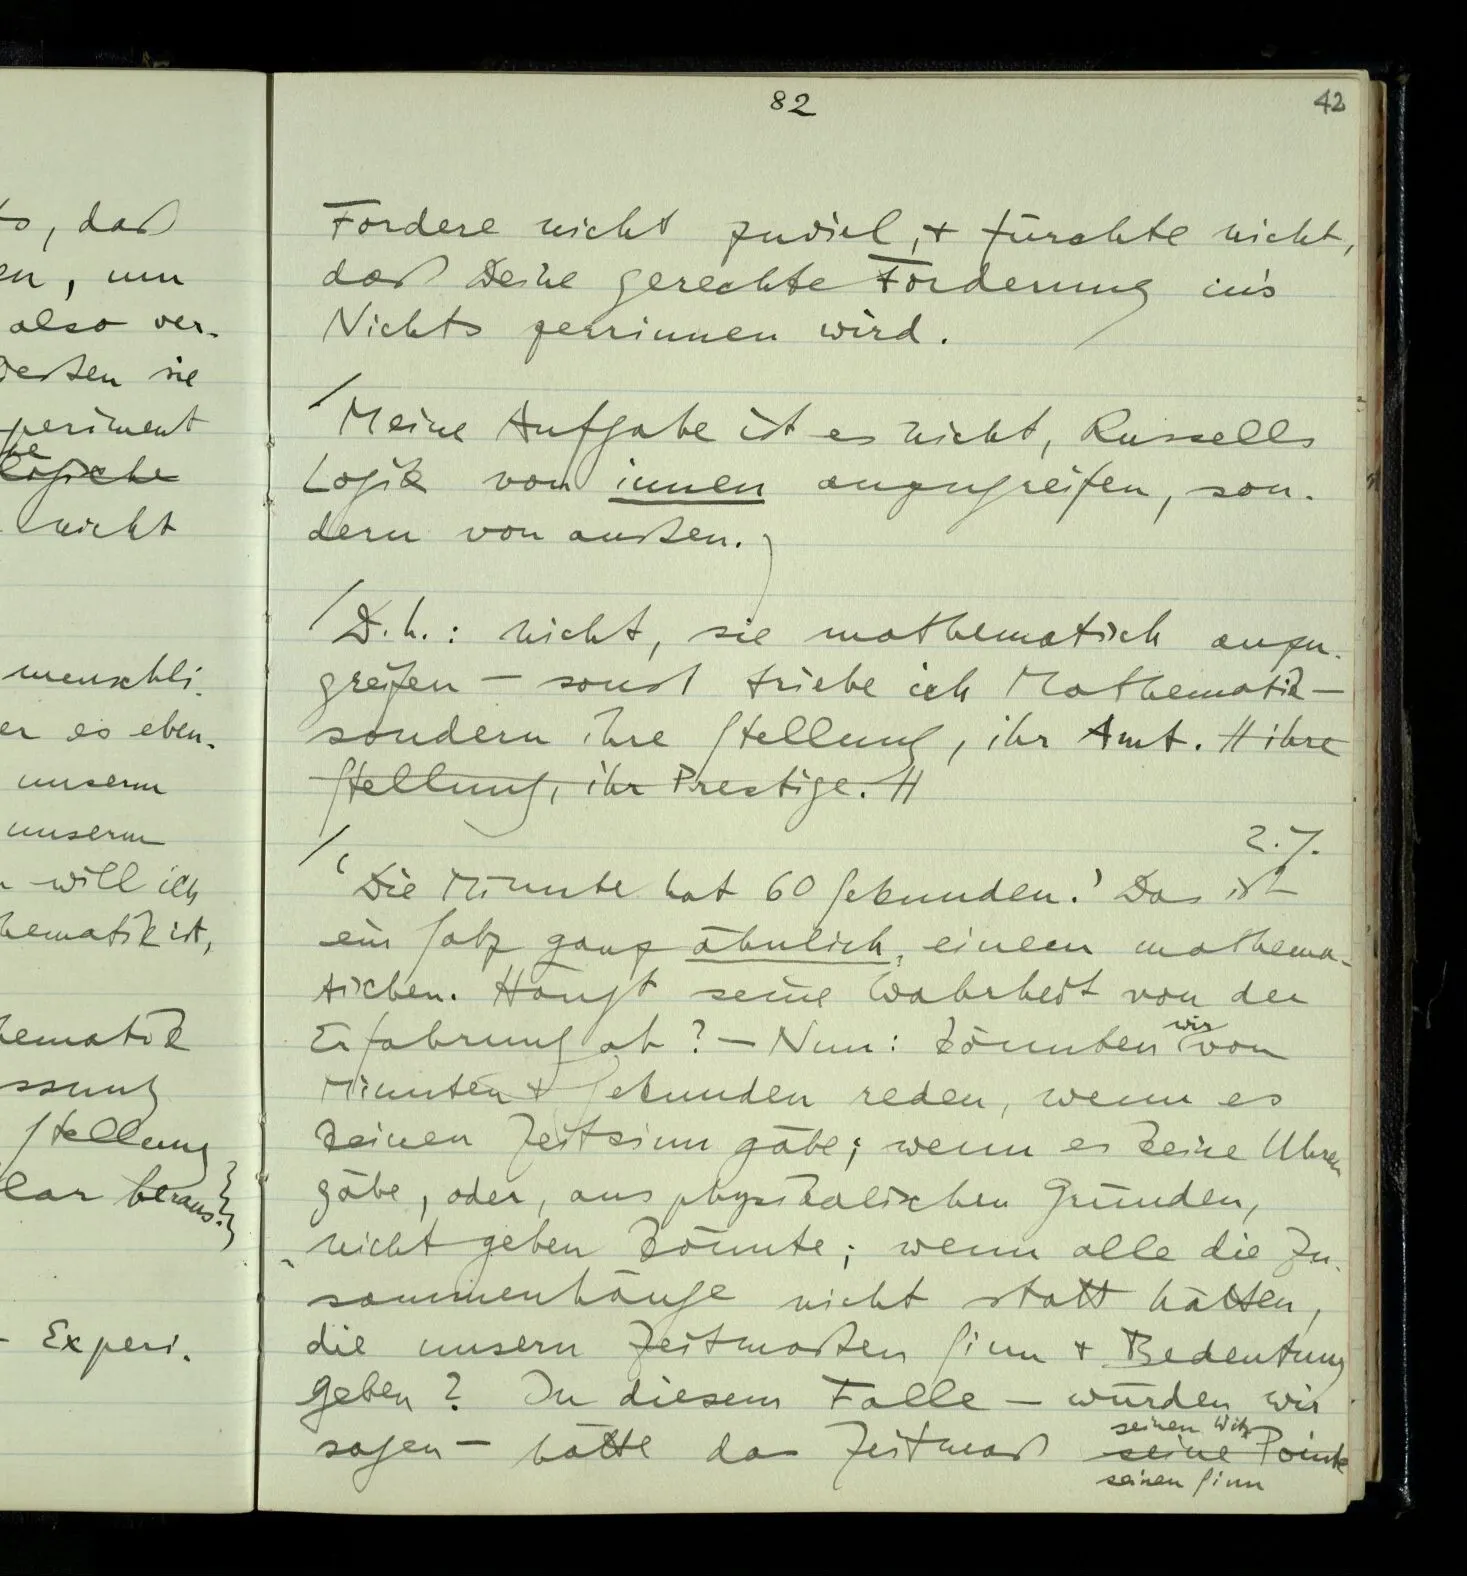 82
42
to, daß
en, um
also ver-
ßen sie
periment
logische
nicht
menschli-
er es eben-
unserm
unserm
will ich
hematik ist,
hematik
ssung
Stellung
lar heraus.
– Experi-
Fordere nicht zuviel, & fürchte nicht,
daß Deine gerechte Forderung ins
Nichts zerrinnen wird.
/ Meine Aufgabe ist es nicht, Russells
Logik von innen anzugreifen, son-
dern von außen.
/ D.h.: nicht, sie mathematisch anzu-
greifen – sonst triebe ich Mathematik –
sondern ihre Stellung, ihr Amt. // ihre
Stellung, ihr Prestige. //
2.7.
/ ‘Die Minute hat 60 Sekunden.’ Das ist
ein Satz ganz ähnlich, einem mathema-
tischen. Hängt seine Wahrheit von der
Erfahrung ab? – Nun: könnten wir von
Minuten & Sekunden reden, wenn es
keinen Zeitsinn gäbe; wenn es keine Uhren
gäbe, oder, aus physikalischen Gründen,
nicht geben könnte; wenn alle die Zu-
sammenhänge nicht statt hätten,
die unsern Zeitmaßen Sinn & Bedeutung
geben? In diesem Falle – würden wir
sagen – hätte das Zeitmaß seine Pointe
seinen Witz
seinen Sinn